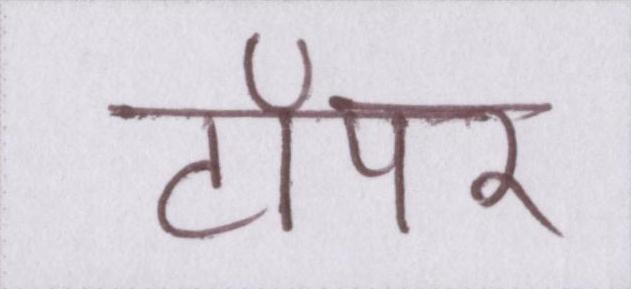 टॉपर